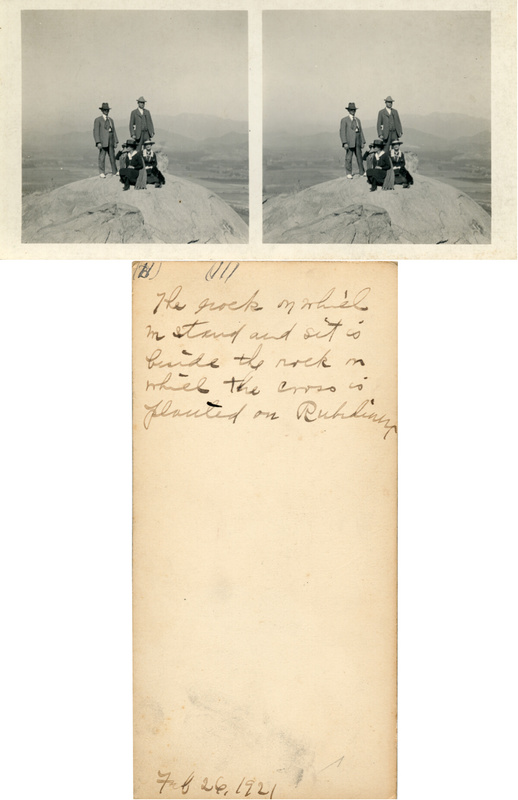 (11)
The rock on which
we stand and sit is
beside the rock on
which the cross is
planted on
Feb 26, 1921